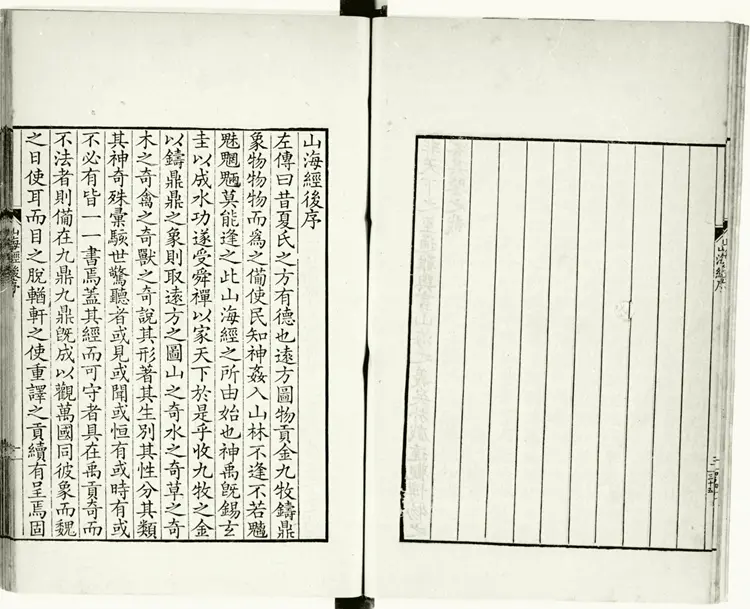 山海經序
山海經後序
左傳曰昔夏氏之方有德也遠方圖物貢金九牧鑄鼎
象物物物而爲之備使民知神姦入山林不逢不若魑
魅魍魎莫能逢之此山海經之所由始也神禹旣錫玄
圭以成水功遂受舜禪以家天下於是乎收九牧之金
以鑄鼎鼎之象則取遠方之圖山之奇水之奇草之奇
木之奇禽之奇獸之奇說其形著其生別其性分其類
其神奇殊彙駭世驚聽者或見或聞或恒有或時有或
不必有皆一一書焉蓋其經而可守者具在禹貢奇而
不法者則備在九鼎九鼎旣成以觀萬國同彼象而魏
之日使耳而目之脫輶軒之使重譯之貢續有呈焉固
山海經後序